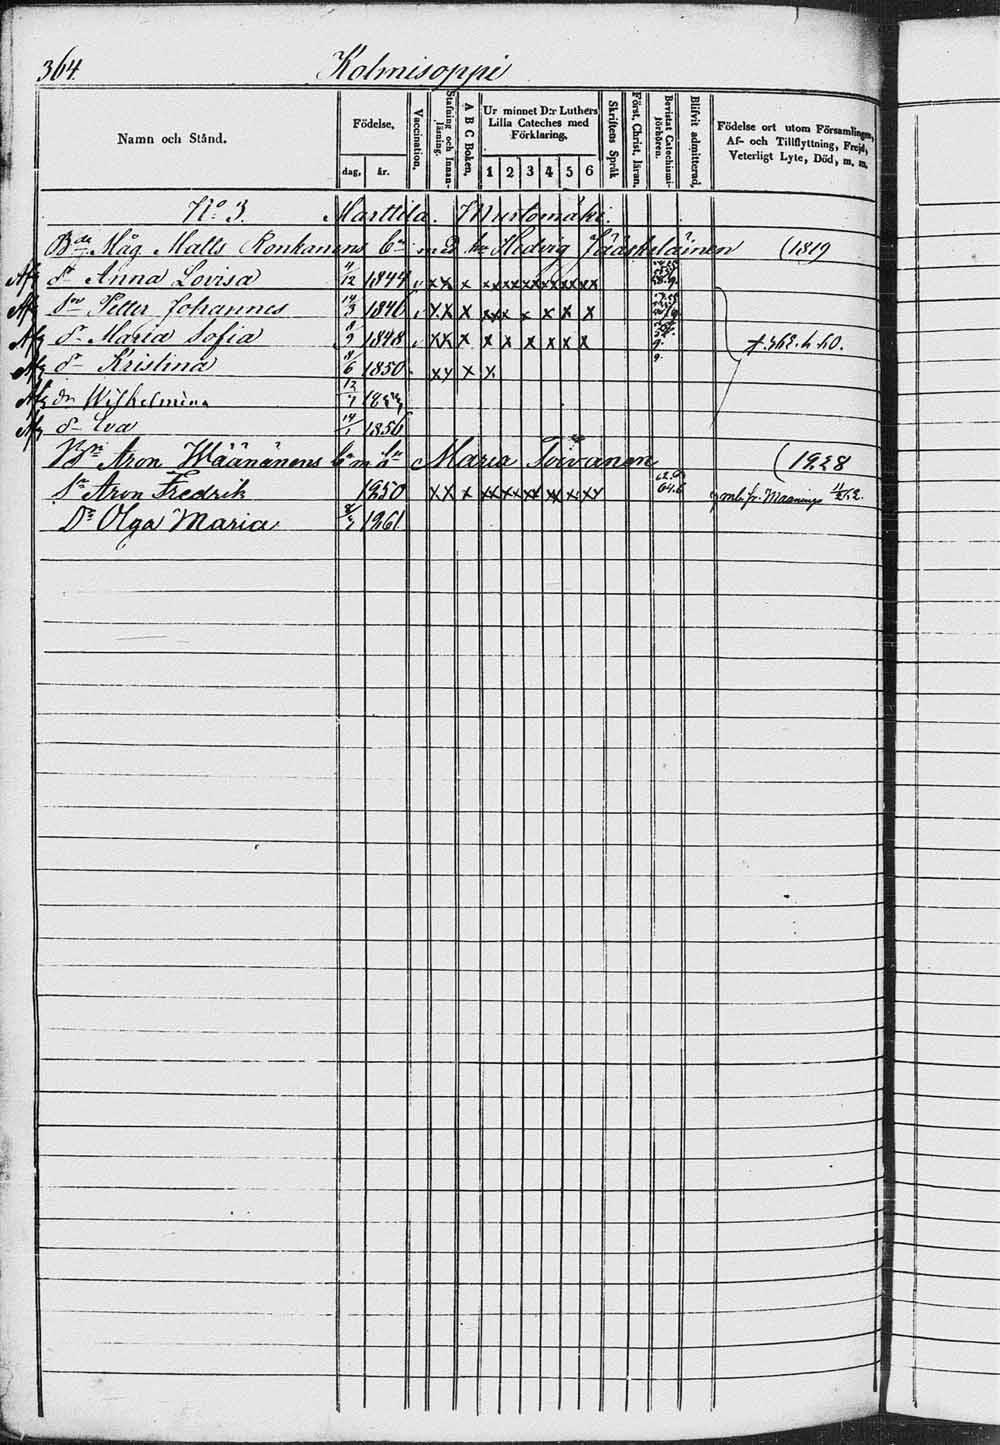 364. Kolmisoppi
Namn och Stånd.
Födelse,
dag, år.
Vaccination.
Stafning och Innan-läsning.
A B C Boken,
Ur minnet D:r Luthers Lilla Cateches med Förklaring,
1 2 3 4 5 6
Skriftens Språk
Först. Christ. läran.
Bevistat Catechismi-förhören.
Blifvit admitterad,
Födelse ort utom Församlingen, Af- och Tillflyttning, Frejd, Veterligt Lyte, Död, m. m.
No 3. Marttila. Murtomäki.
Bde Måg Matts Ronkanens bn med hu Hedvig Jääskeläinen (1819
Afg dr Anna Lovisa 11/12 1844 v xx x xx xx xx xx xx xx
Afg Sn Petter Johannes 14/3 1846 v xx x xx x x x x x
Afg dr Maria Sofia 8/9 1848 v xx x x x x x x x f. 362. h. 60.
Afg dr Kristina 8/6 1850 xx x x
Afg dr Wilhelmina 12/7
Afg dr Eva 1856
Aron Väänänens bn m hu Maria Toivanen (1828
Sn Aron Fredrik 1850 xx x xx xx xx xx xx xx mb. fr. Maaninga
Dr Olga Maria 1861